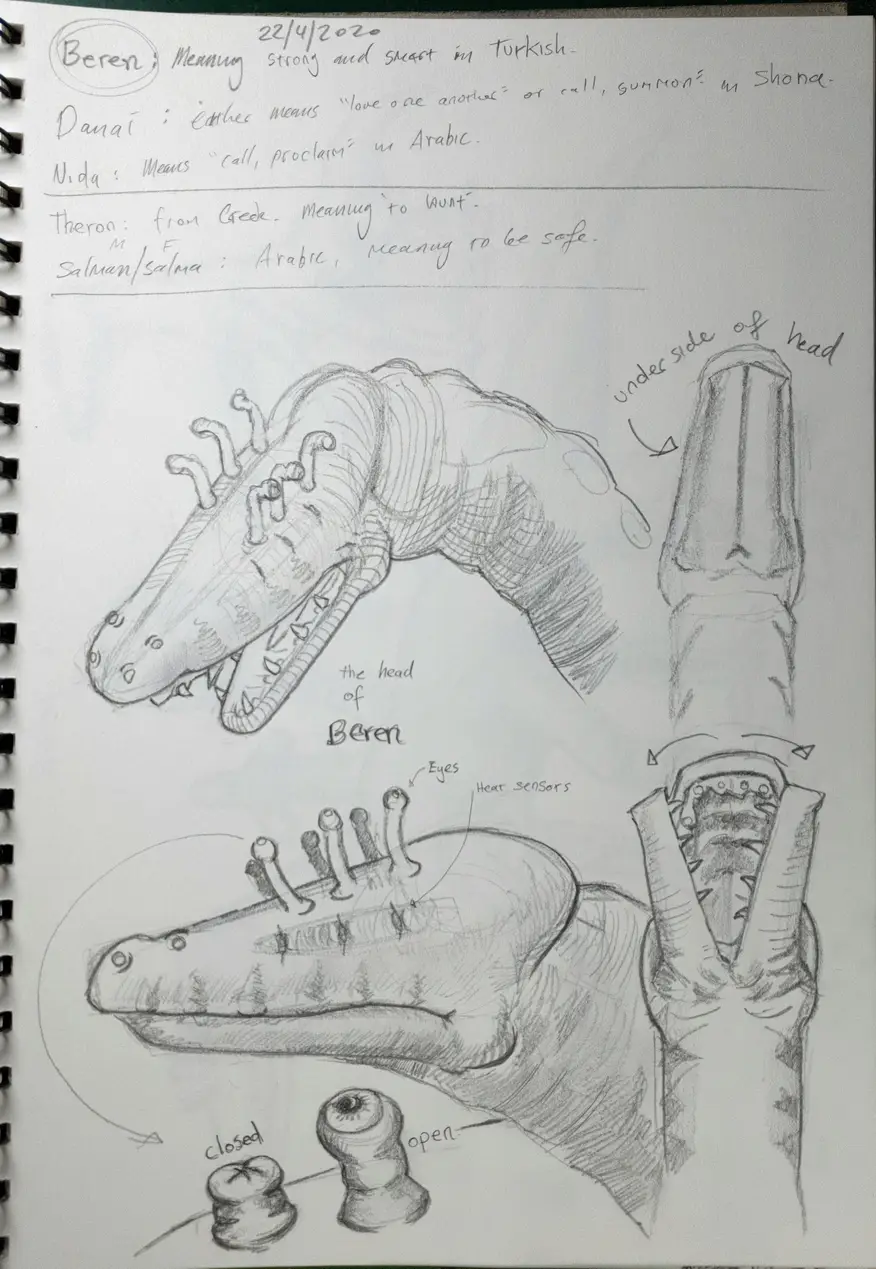 22/4/2020
Beren: Meaning strong and smart in Turkish.
Danai : either means "love one another" or call, summon" in Shona.
Nida : Means "call, proclaim" in Arabic.
Theron: from Greek. Meaning "to hunt".
M F
Salman/Salma : Arabic, meaning to be safe.
underside of head
the head
of
Beren
Eyes
Heat sensors
closed
open